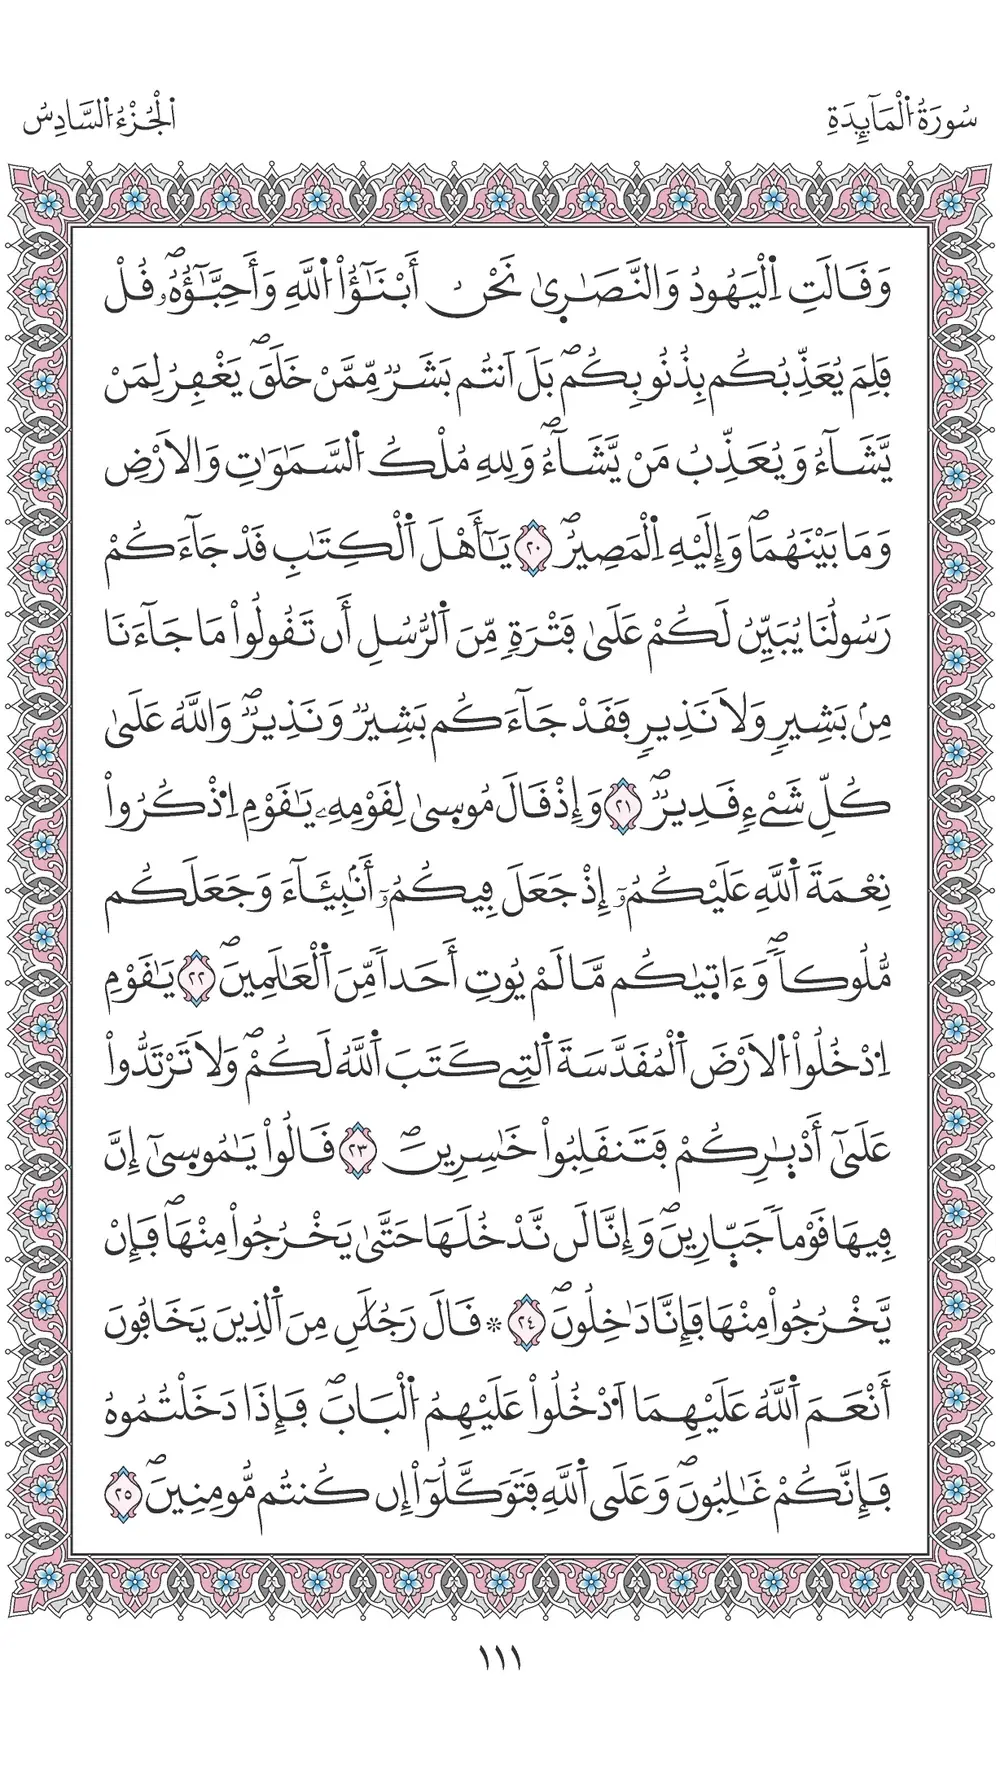 سُورَةُ اُ۬لْمَآئِدَةِ
اَ۬لْجُزْءُ اُ۬لسَّادِسُ
وَقَالَتِ اِ۬لْيَهُودُ وَالنَّصَٰر۪ىٰ نَحْنُ أَبْنَٰٓؤُاْ اُ۬للَّهِ وَأَحِبَّٰٓؤُهُۥۖ قُلْ
فَلِمَ يُعَذِّبُكُم بِذُنُوبِكُمۖ بَلَ اَنتُم بَشَرٞ مِّمَّنْ خَلَقَۖ يَغْفِرُ لِمَنْ
يَّشَآءُ وَيُعَذِّبُ مَنْ يَّشَآءُۖ وَلِلهِ مُلْكُ اُ۬لسَّمَٰوَٰتِ وَالَارْضِ
وَمَا بَيْنَهُمَاۖ وَإِلَيْهِ اِ۬لْمَصِيرُۖ ٢٠ يَٰٓأَهْلَ اَ۬لْكِتَٰبِ قَدْ جَآءَكُمْ
رَسُولُنَا يُبَيِّنُ لَكُمْ عَلَىٰ فَتْرَةٖ مِّنَ اَ۬لرُّسُلِ أَن تَقُولُواْ مَا جَآءَنَا
مِنۢ بَشِيرٖ وَلَا نَذِيرٖ فَقَدْ جَآءَكُم بَشِيرٞ وَنَذِيرٞۖ وَاللَّهُ عَلَىٰ
كُلِّ شَےْءٖ قَدِيرٞۖ ٢١ وَإِذْ قَالَ مُوس۪ىٰ لِقَوْمِهِۦ يَٰقَوْمِ اِ۟ذْكُرُواْ
نِعْمَةَ اَ۬للَّهِ عَلَيْكُمُۥٓ إِذْ جَعَلَ فِيكُمُۥٓ أَنۢبِيَٰٓءَ وَجَعَلَكُم
مُّلُوكاٗۖ وَءَات۪يٰكُم مَّا لَمْ يُوتِ أَحَداٗ مِّنَ اَ۬لْعَٰلَمِينَۖ ٢٢ يَٰقَوْمِ
اِ۟دْخُلُواْ اُ۬لَارْضَ اَ۬لْمُقَدَّسَةَ اَ۬لتِے كَتَبَ اَ۬للَّهُ لَكُمْۖ وَلَا تَرْتَدُّواْ
عَلَىٰٓ أَدْبٰ۪رِكُمْ فَتَنقَلِبُواْ خَٰسِرِينَۖ ٢٣ قَالُواْ يَٰمُوس۪ىٰٓ إِنَّ
فِيهَا قَوْماٗ جَبّ۪ارِينَۖ وَإِنَّا لَن نَّدْخُلَهَا حَتَّىٰ يَخْرُجُواْ مِنْهَاۖ فَإِنْ
يَّخْرُجُواْ مِنْهَا فَإِنَّا دَٰخِلُونَۖ ٢٤ ۞ قَالَ رَجُلَٰنِ مِنَ اَ۬لذِينَ يَخَافُونَ
أَنْعَمَ اَ۬للَّهُ عَلَيْهِمَا اَ۟دْخُلُواْ عَلَيْهِمُ اُ۬لْبَابَۖ فَإِذَا دَخَلْتُمُوهُ
فَإِنَّكُمْ غَٰلِبُونَۖ وَعَلَى اَ۬للَّهِ فَتَوَكَّلُوٓاْ إِن كُنتُم مُّومِنِينَۖ ٢٥
١١١